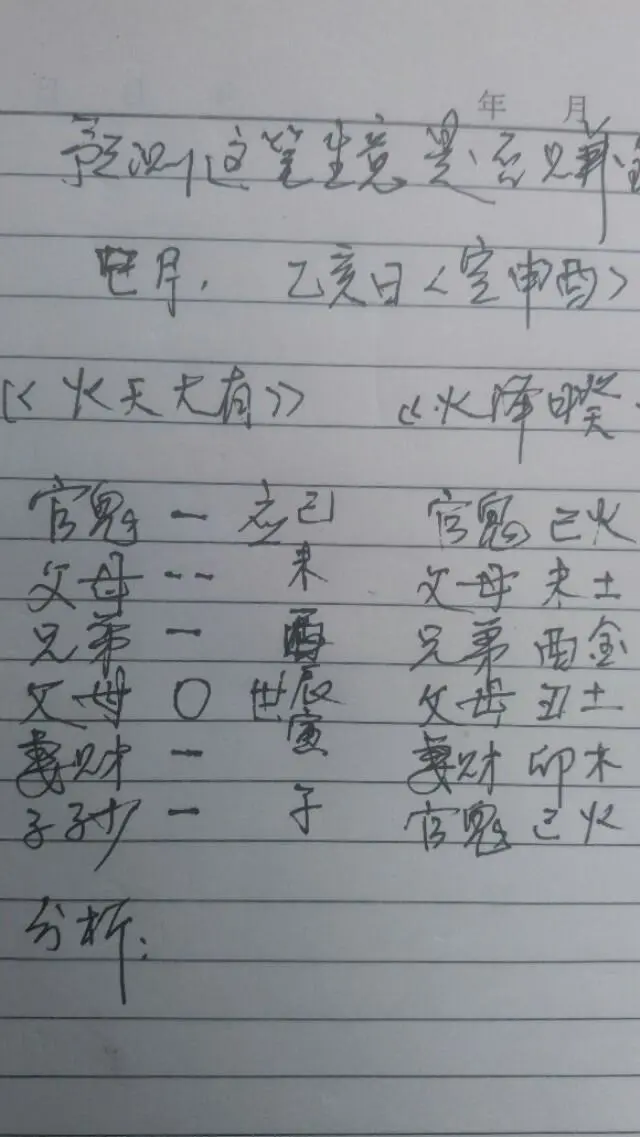 年 月
预测这笔生意是否赚
月. 乙亥日<空申酉>
《火天大有》 《火泽睽
官鬼 一 应巳 官鬼 巳火
父母 -- 未 父母 未土
兄弟 一 酉 兄弟 酉金
父母 〇 世辰 父母 丑土
妻财 一 寅 妻财 卯木
子孙 一 子 官鬼 巳火
分析: